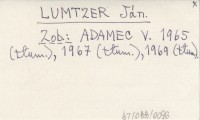 LUMTZER Ján.
Zob: ADAMEC V. 1965
(tłum.), 1967 (tłum.), 1969 (tłum.)
67/088/0096